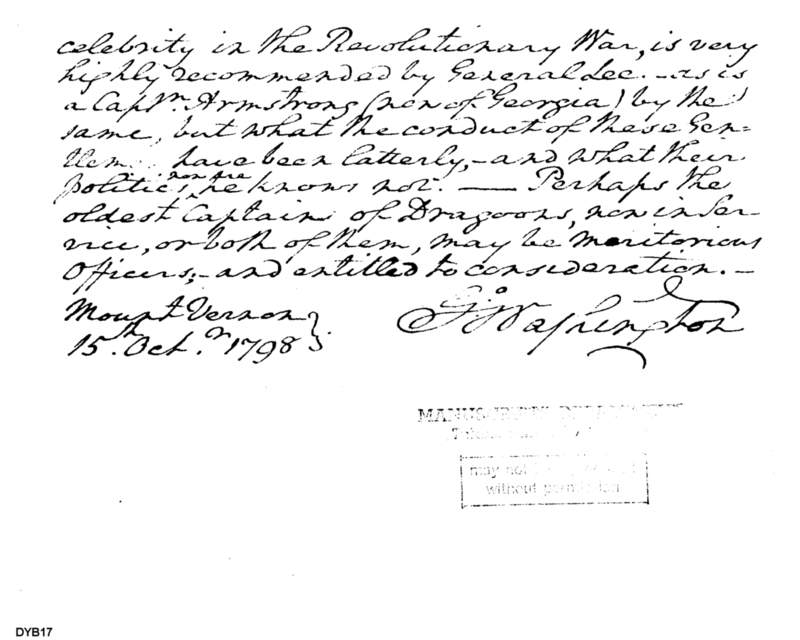 celebrity in the Revolutionary War, is very
highly recommended by General Lee. – as is
a Captn. Armstrong (now of Georgia) by the
same, but what the conduct of these Gen=
tlem.. have been latterly, – and what their
politics now are he knows not. — Perhaps the
oldest Captain of Dragoons, now in Ser-
vice, or both of them, may be meritorious
Officers; – and entitled to consideration. –
Mount Vernon
15th. Octr. 1798
Go Washington
MANUSCRIPTS
may not
without permission
DYB17